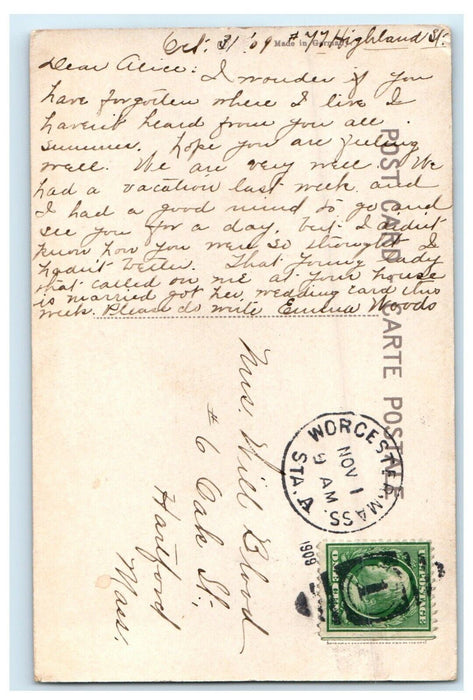 Oct. 31 '09 # 77 Highland St.
Made in Germany
Dear Alice: I wonder if you
have forgotten where I live I
haven't heard from you all
summer. hope you are feeling
well. We are very well. We
had a vacation last week and
I had a good mind to go and
see you for a day, but I didn't
know how you were so thought I
hadn't better. That young lady
that called on me at your house
is married got her wedding card this
week. Please do write Emma Woods
POST CARD CARTE POSTALE
Mrs. Will Blood
# 6 Oak St.,
Hartford
Mass.
WORCESTER, MASS.
STA. A
NOV 1
9 AM
1909
U.S. POSTAGE
1